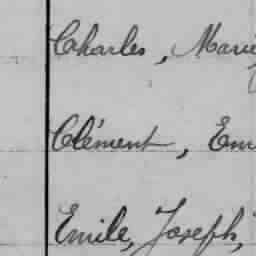 Charles, Marie
Clément, Em
Emile, Joseph,